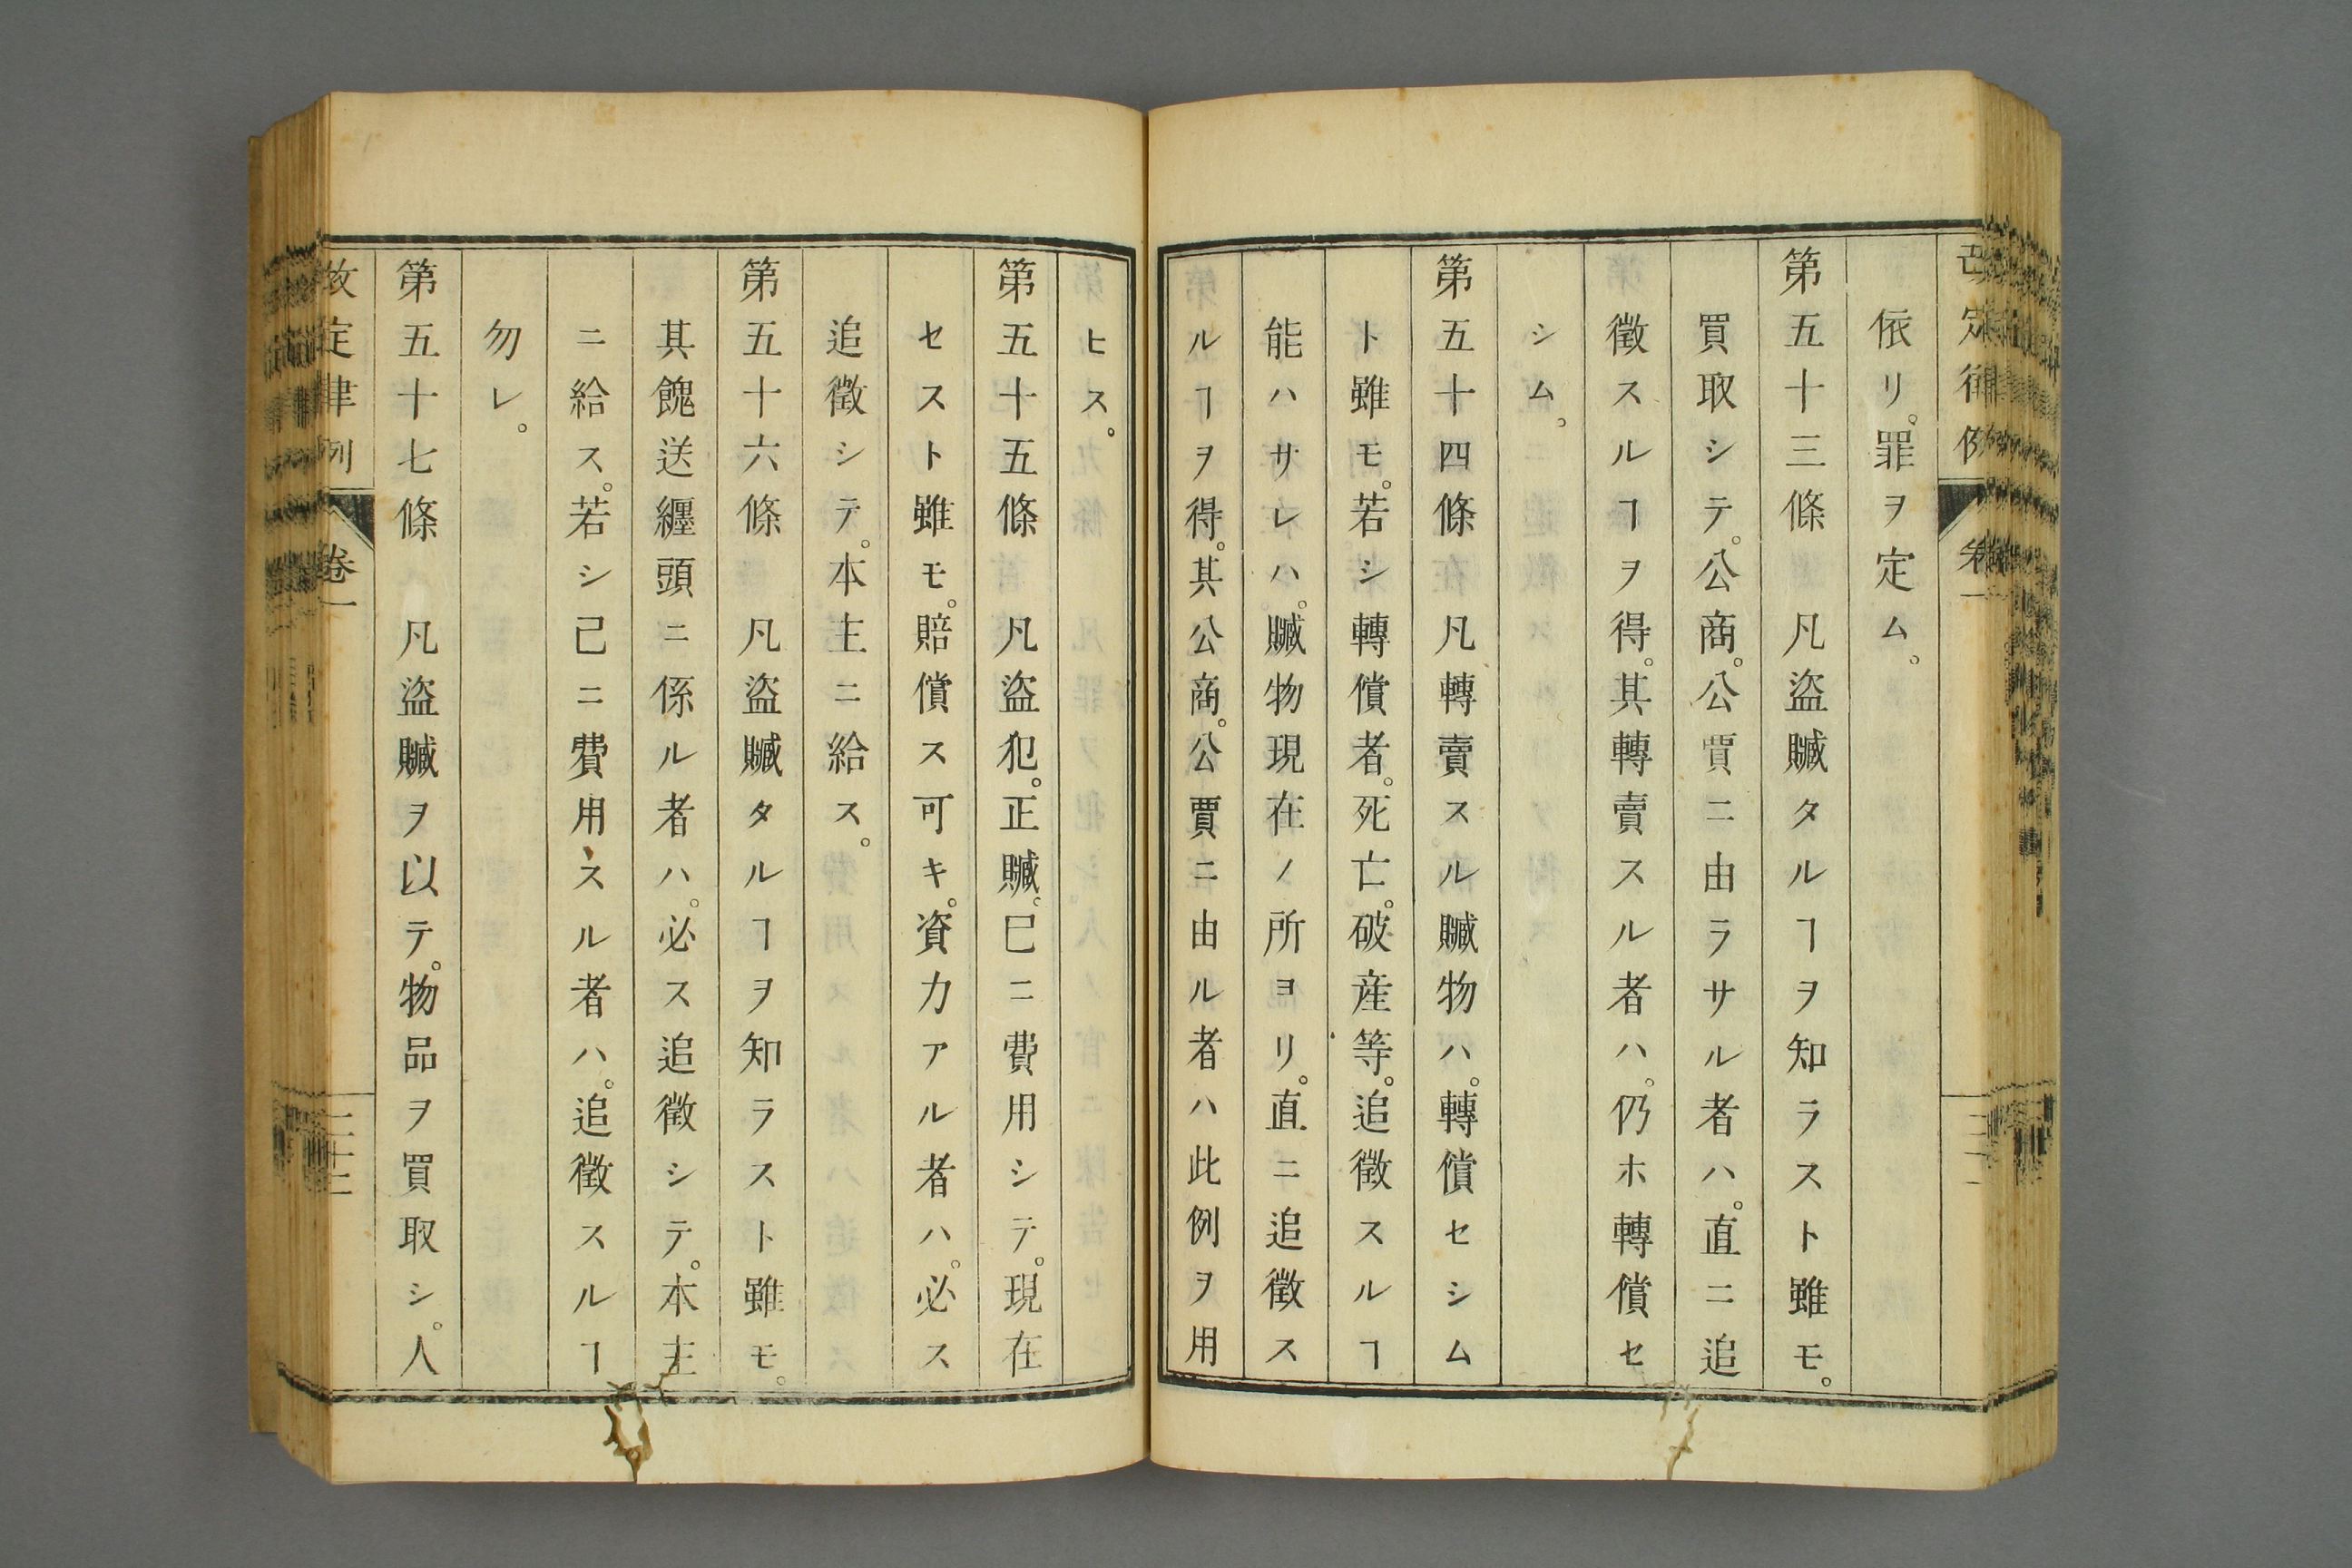 依リ。罪ヲ定ム。
第五十三條　凡盜贓タルヿヲ知ラスト雖モ。
買取シテ。公商。公賈ニ由ラサル者ハ。直ニ追
徵スルヿヲ得。其轉賣スル者ハ。仍ホ轉償セ
シム。
第五十四條　凡轉賣スル贓物ハ。轉償セシム
ト雖モ。若シ轉償者。死亡。破産等。追徵スルヿ
能ハサレハ。贓物現在ノ所ヨリ。直ニ追徵ス
ルヿヲ得。其公商。公賈ニ由ル者ハ此例ヲ用
ヒス。
第五十五條　凡盜犯。正贓。已ニ費用シテ。現在
セスト雖モ。賠償ス可キ。資力アル者ハ。必ス
追徵シテ。本主ニ給ス。
第五十六條　凡盜贓タルヿヲ知ラスト雖モ。
其餽送纏頭ニ係ル者ハ。必ス追徵シテ。本主
ニ給ス。若シ已ニ費用スル者ハ。追徵スルヿ
勿レ。
第五十七條　凡盜贓ヲ以テ。物品ヲ買取シ。人
改定律例　卷一　二十二